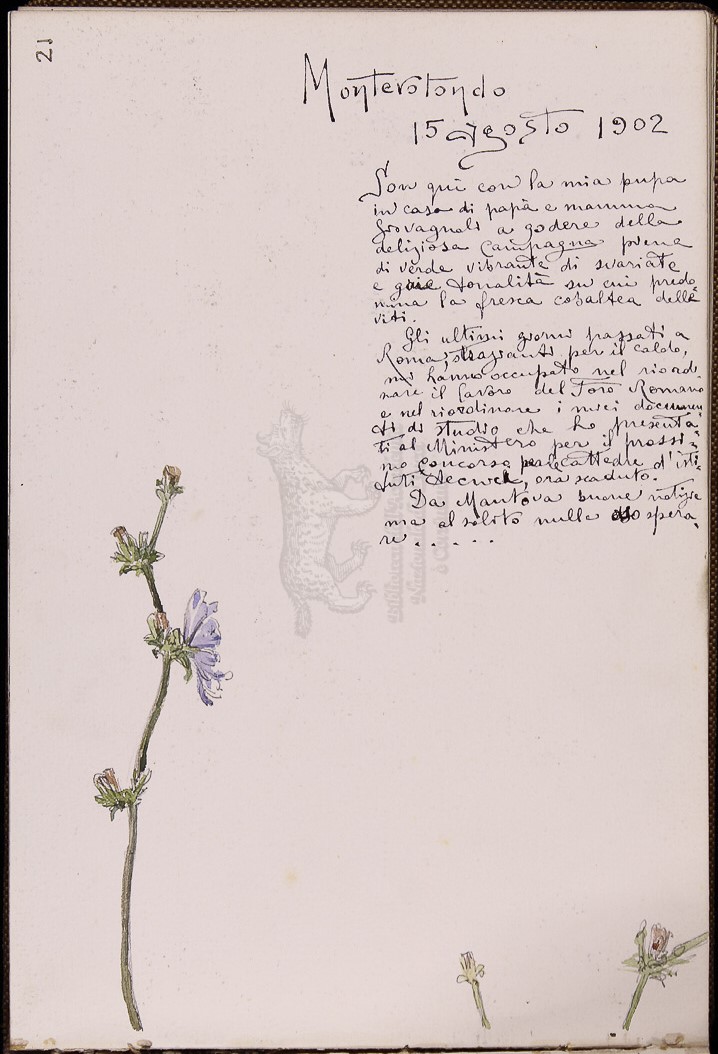 21
Monterotondo
15 Agosto 1902
Son qui con la mia pupa
in casa di papà e mamma
Giovagnoli a godere della
deliziosa campagna piena
di verde vibrante di svariate
e gaie tonalità su cui predo-
mina la fresca cobaltea delle
viti.
Gli ultimi giorni passati a
Roma, strazianti per il caldo,
mi hanno occupato nel riordi-
nare il lavoro del Foro Romano
e nel riordinare i miei documen-
ti di studio che ho presenta-
ti al Ministero per il prossi-
mo concorso per le cattedre d'isti-
tuti tecnici, ora scaduto.
Da Mantova buone notizie
ma al solito nulla da spera-
re . . . . .